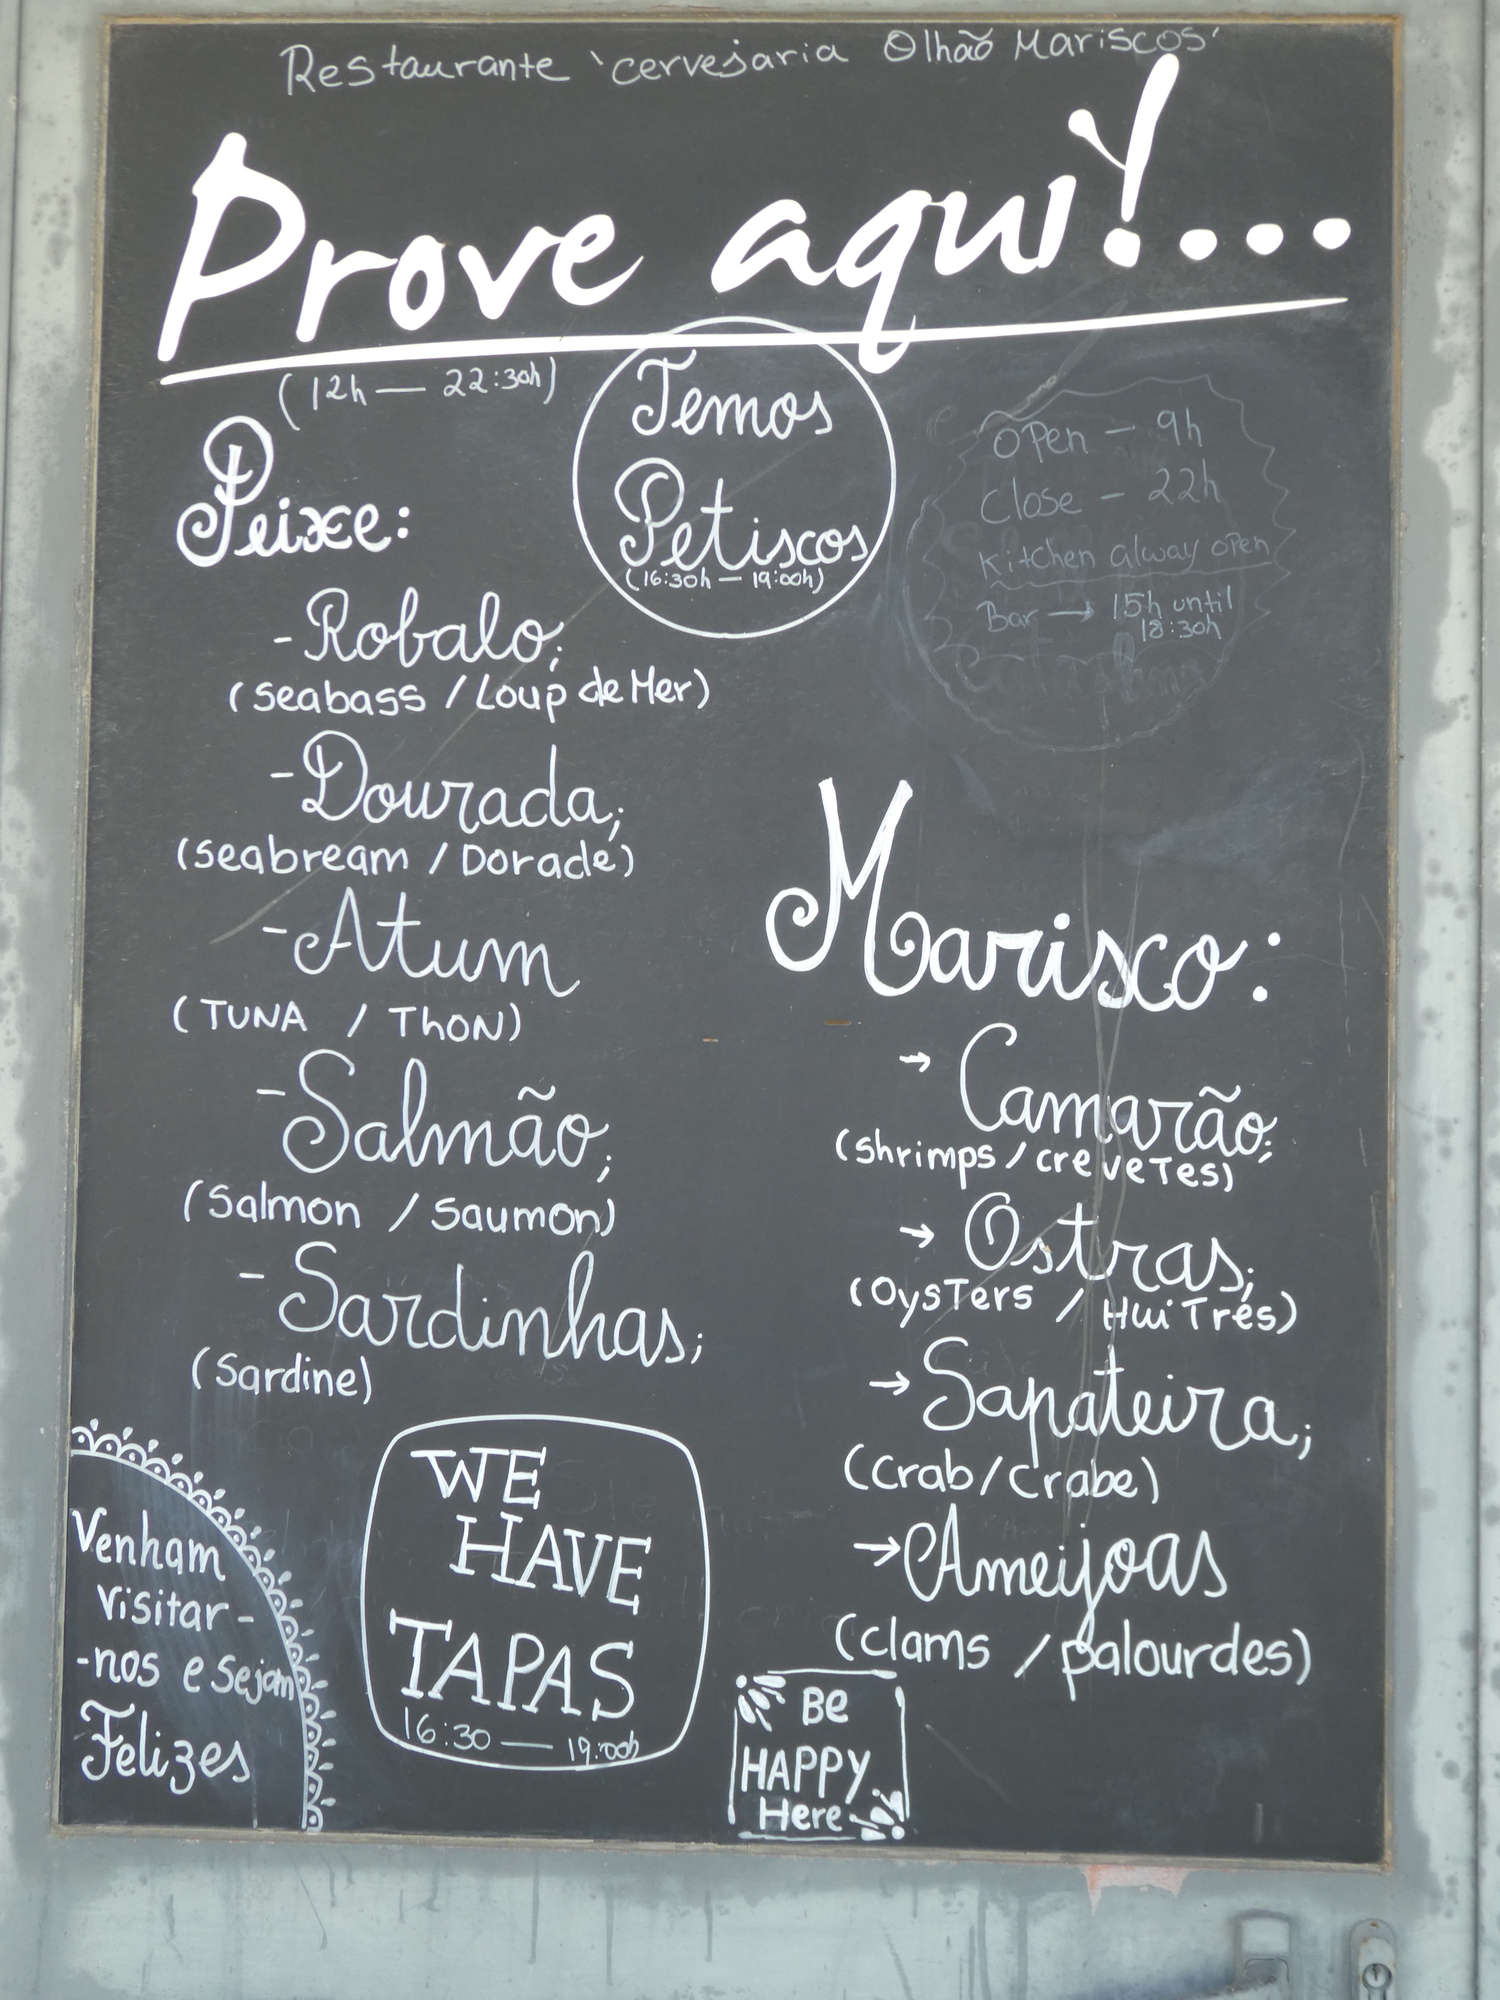 Restaurante 'cervejaria Olhão Mariscos'
Prove aqui!...
(12h — 22:30h)
Temos
Petiscos
(16:30h — 19:00h)
Open - 9h
Close - 22h
Kitchen alway open
Bar → 15h until
18:30h
Peixe:
- Robalo;
(Seabass / Loup de Mer)
- Dourada;
(Seabream / Dorade)
- Atum
(TUNA / ThoN)
- Salmão;
(Salmon / Saumon)
- Sardinhas;
(Sardine)
Marisco:
→ Camarão;
(shrimps / creveTes)
→ Ostras;
(OysTers / HuiTres)
→ Sapateira;
(Crab/Crabe)
→ Ameijoas
(clams / palourdes)
Venham
visitar-
-nos e sejam
Felizes
WE
HAVE
TAPAS
16:30 — 19:00h
Be
HAPPY
Here